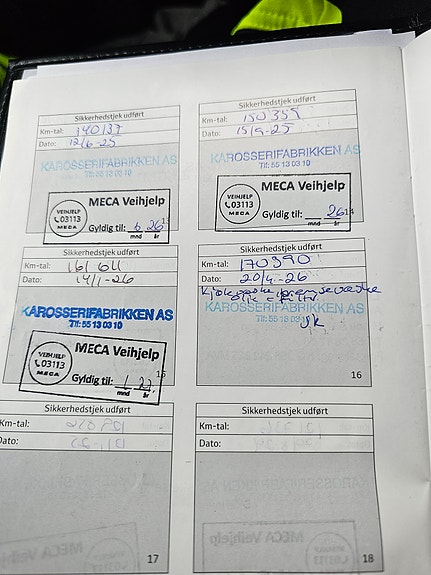 Sikkerhedstjek udført
Km-tal: 140137
Dato: 12/6-25
KAROSSERIFABRIKKEN AS
Tlf: 55 13 03 10
VEIHJELP
03113
MECA
MECA Veihjelp
Gyldig til: 6 26
mnd år
13
Sikkerhedstjek udført
Km-tal: 150359
Dato: 15/9-25
KAROSSERIFABRIKKEN AS
Tlf: 55 13 03 10
VEIHJELP
03113
MECA
MECA Veihjelp
Gyldig til: 26
mnd år
14
Sikkerhedstjek udført
Km-tal: 161 611
Dato: 14/1-26
KAROSSERIFABRIKKEN AS
Tlf: 55 13 03 10
VEIHJELP
03113
MECA
MECA Veihjelp
Gyldig til: 1 27
mnd år
15
Sikkerhedstjek udført
Km-tal: 170390
Dato: 20/4-26
Kjølevæske bremsevæske
olje
KAROSSERIFABRIKKEN AS
Tlf: 55 13 03 10
16
Sikkerhedstjek udført
Km-tal:
Dato:
17
Sikkerhedstjek udført
Km-tal:
Dato:
18